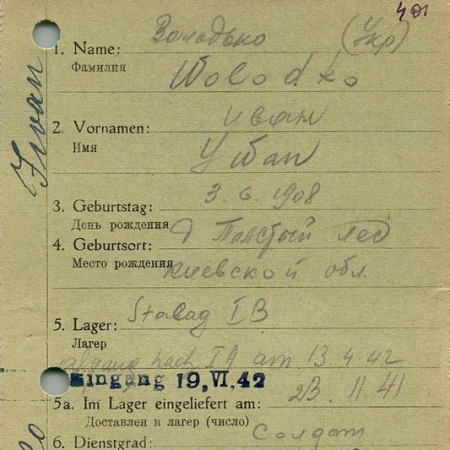 401
Володько (Укр)
1. Name: Wolodko
Фамилия
Iwan
Иван
2. Vornamen:
Имя
3. 6. 1908
3. Geburtstag:
День рождения
Толстый лес
4. Geburtsort:
Место рождения Киевской обл.
5. Lager: Stalag I B
Лагерь
abgang nach I A am 13.4.42
Eingang 19. VI. 42
5a. Im Lager eingeliefert am: 23. 11. 41
Доставлен в лагер (число)
6. Dienstgrad: Солдат